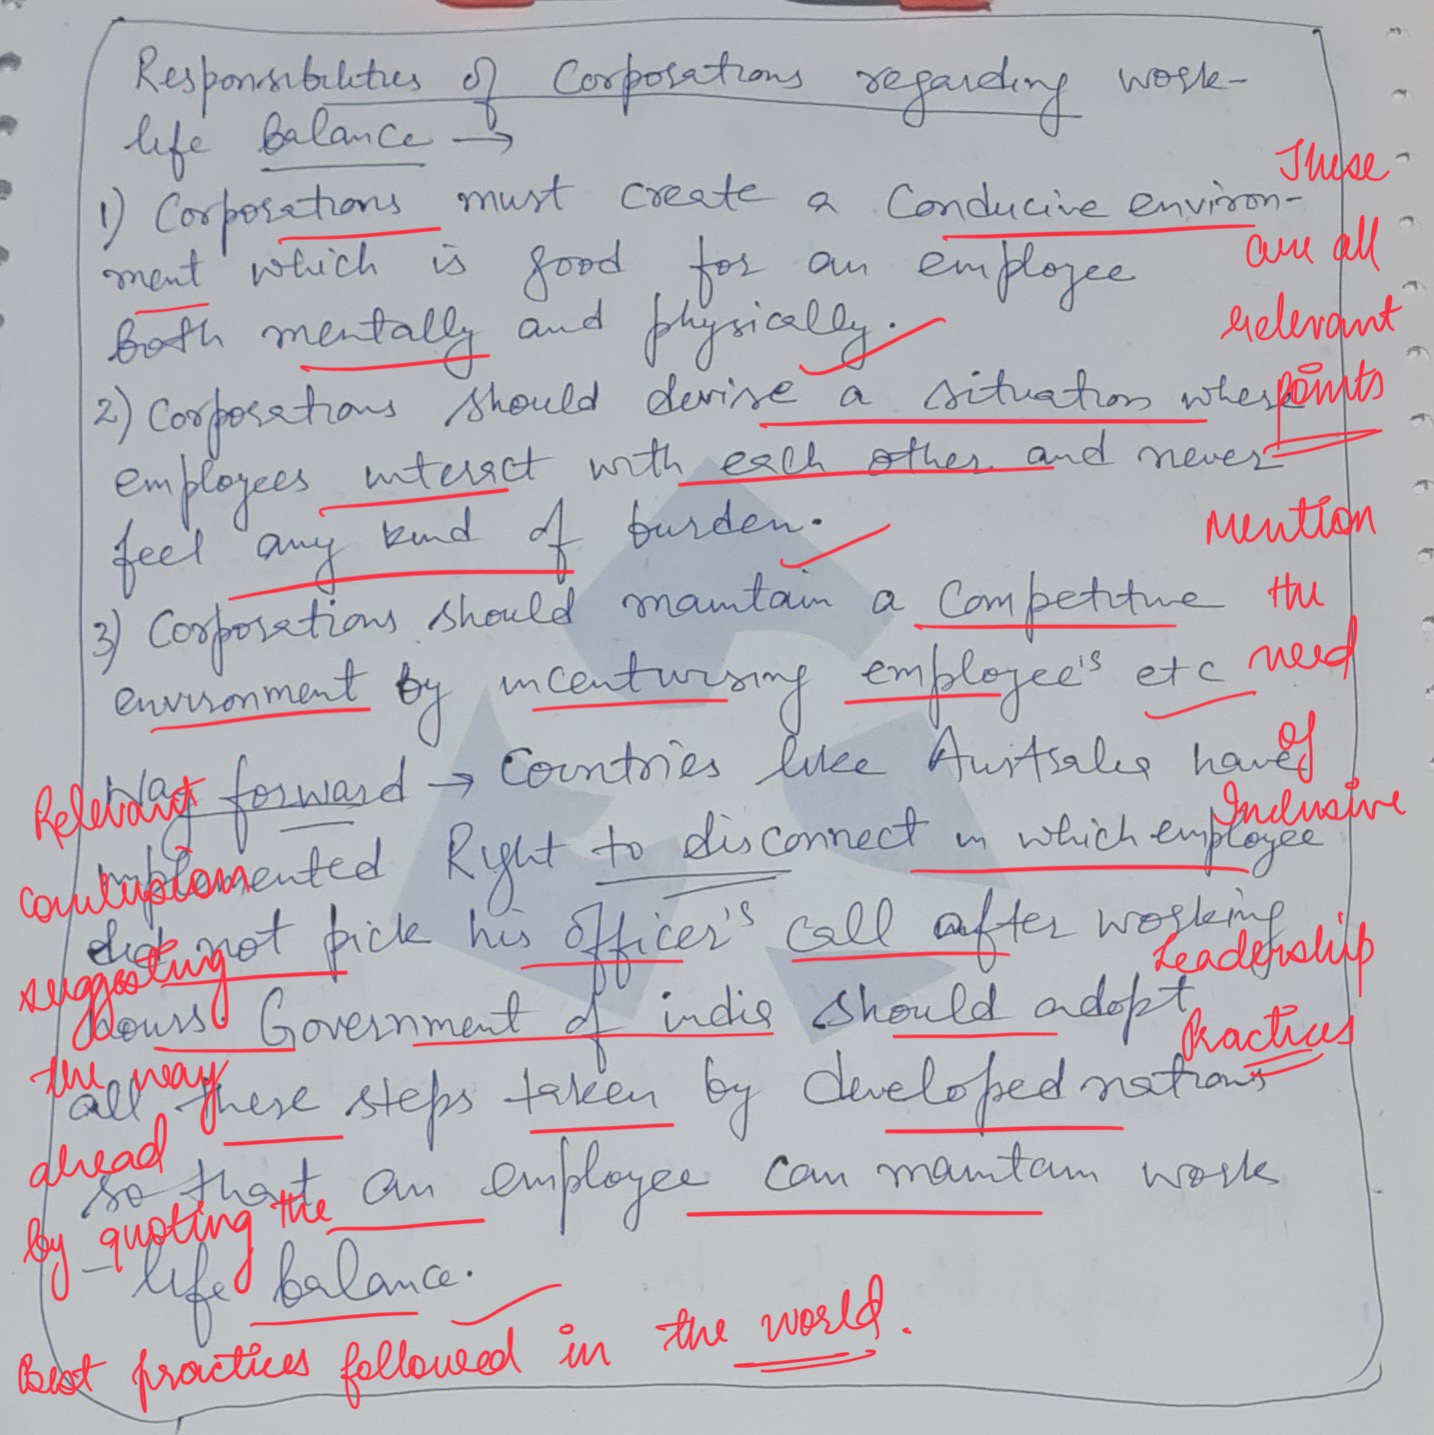 Responsibilities of Corporations regarding work-
life Balance →
1) Corporations must create a Conducive environ-
ment which is good for an employee
both mentally and physically.
2) Corporations should devise a situation where
employees interact with each other and never
feel any kind of burden.
3) Corporations should maintain a Competitive
environment by incentivising employee's etc
Way forward → Countries like Australia have
implemented Right to disconnect in which employee
did not pick his officer's call after working
hours Government of india should adopt
all these steps taken by developed nations
so that an employee can maintain work
- life balance.
These
are all
relevant
points
Mention
the
need
of
Inclusive
Leadership
Practices
Relevant
conclusion
suggesting
the way
ahead
by quoting the
Best practices followed in the world.